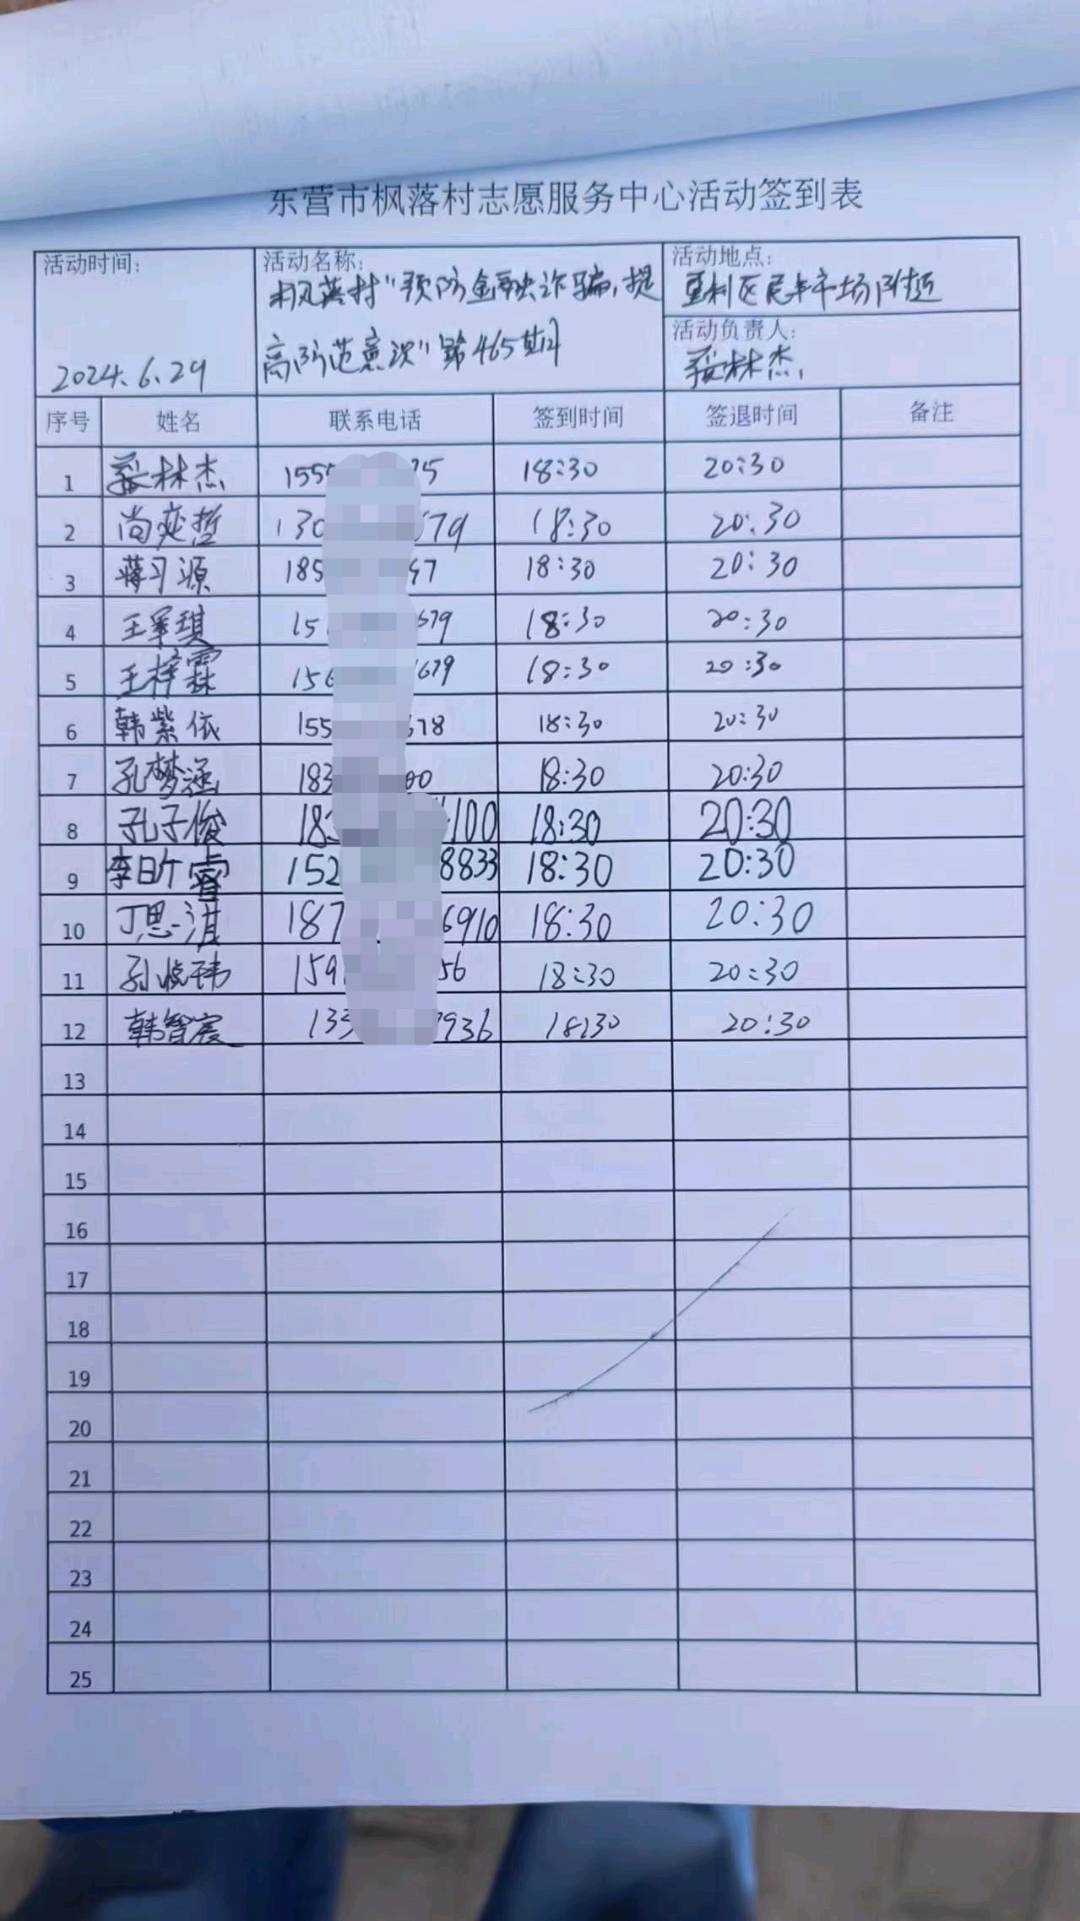 东营市枫落村志愿服务中心活动签到表
活动时间:
2024.6.29
活动名称:
枫落村“预防金融诈骗,提
高防范意识”第465期
活动地点:
垦利区民丰市场附近
活动负责人:
林杰
序号 姓名 联系电话 签到时间 签退时间 备注
1 林杰 155 75 18:30 20:30
2 尚奕哲 130 679 18:30 20:30
3 蒋习源 185 47 18:30 20:30
4 王军琪 15 679 18:30 20:30
5 王梓霖 156 679 18:30 20:30
6 韩紫依 155 678 18:30 20:30
7 孔梦涵 183 00 18:30 20:30
8 孔子俊 183 100 18:30 20:30
9 李昕睿 152 8833 18:30 20:30
10 丁思淇 187 6910 18:30 20:30
11 孙悦玮 159 56 18:30 20:30
12 韩智宸 133 7936 18:30 20:30
13
14
15
16
17
18
19
20
21
22
23
24
25